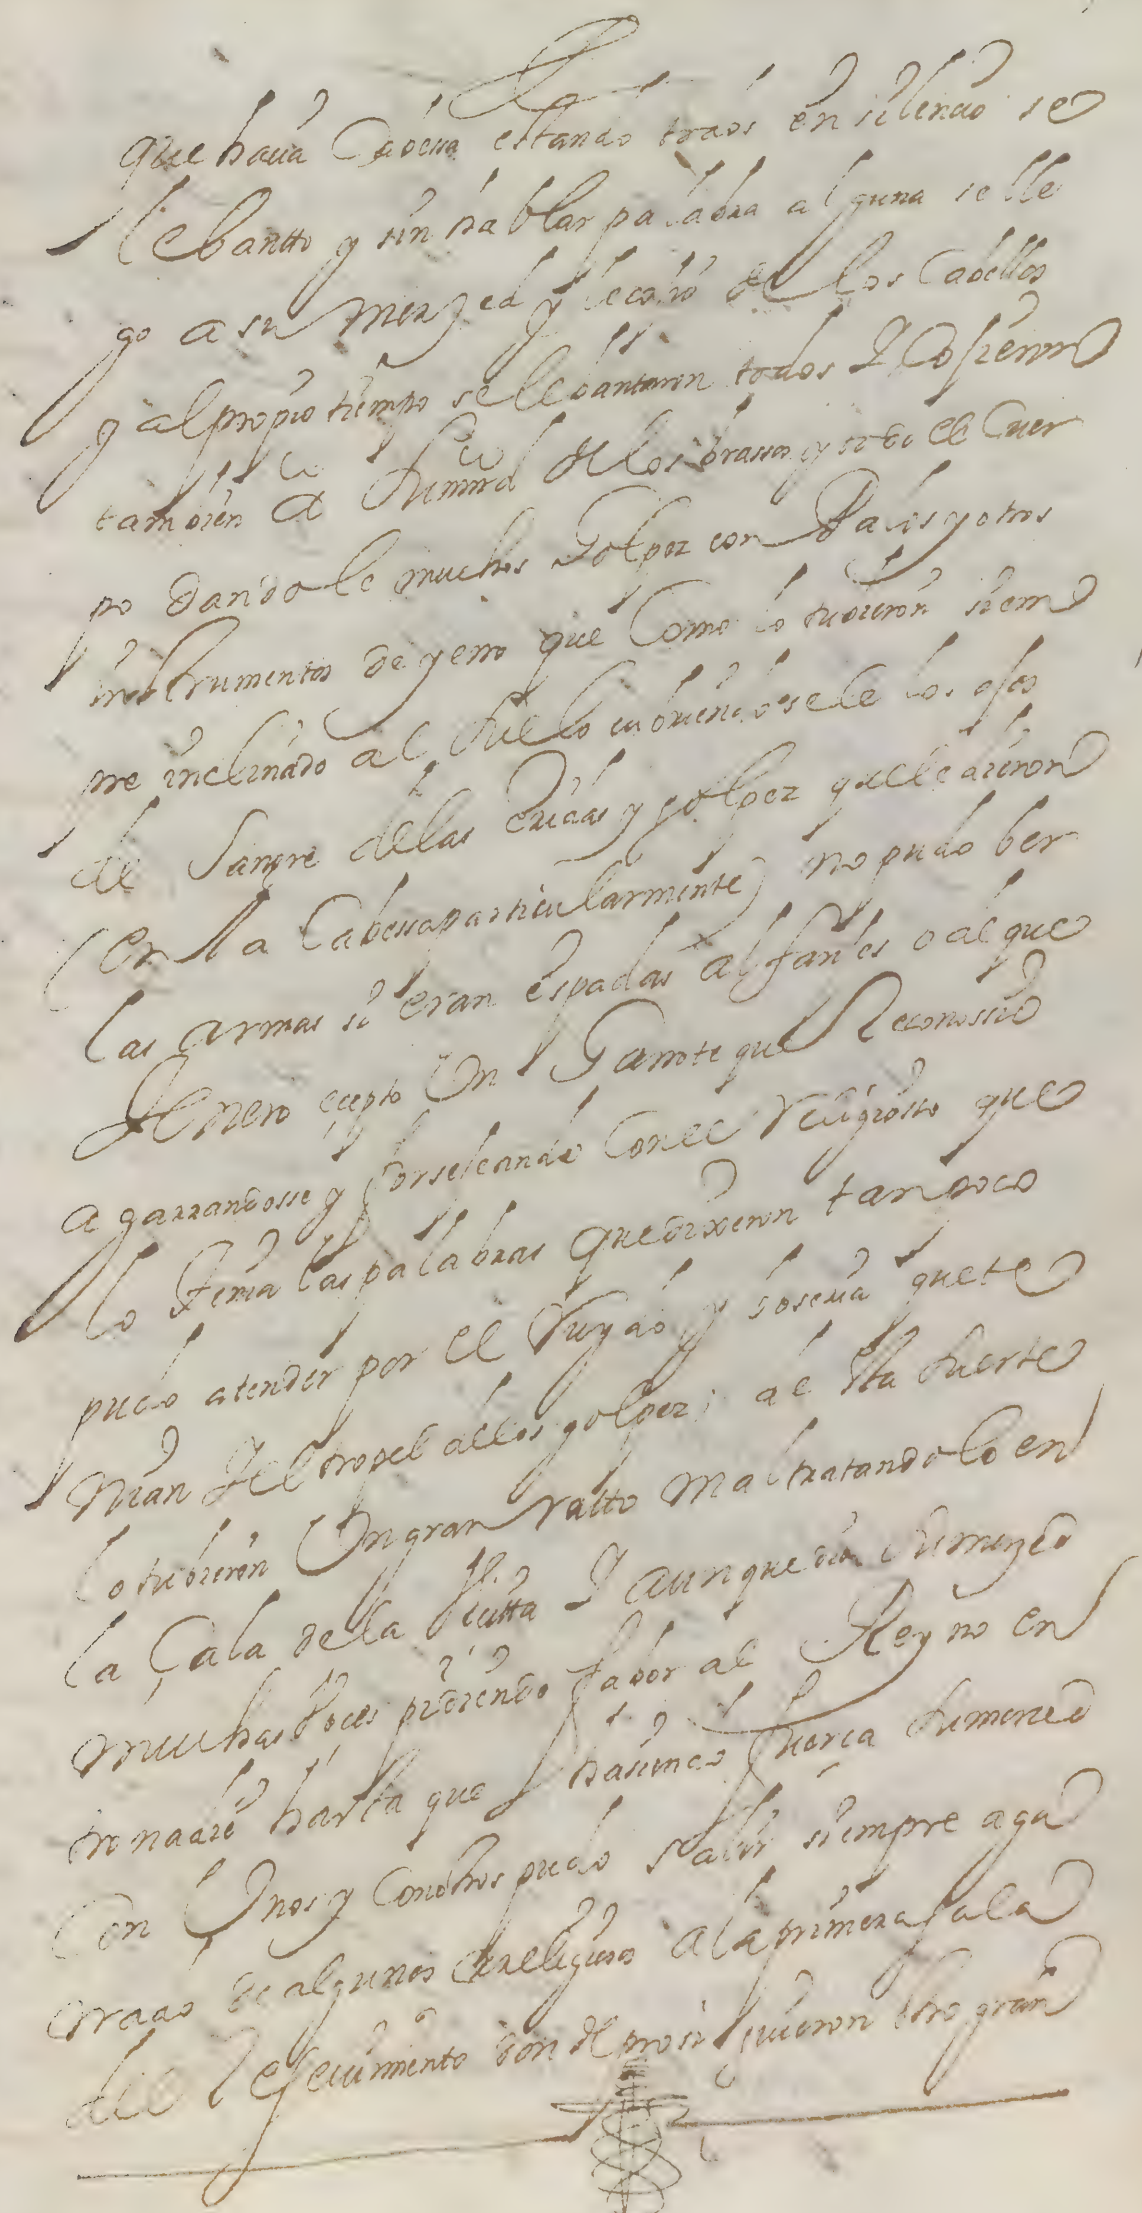 que hacia Cabessa estando todos en silencio se
lebantto y sin hablar palabra alguna se lle
go a su merzed y le cojio de los Cabellos
y al propio tiempo se lebantaron todos Y Cojieron
tambien a su md de los brassos y todo el Cuer
po dandole muchos Golpez con Palos y otros
instrumentos de yerro que Como lo tubieron siem
pre inclinado al suelo cubriendosele los ojos
de Sangre de las eridas y golpez que le dieron
(en la Cabessa particularmente) no pudo ber
las armas si eran espadas alfanjes o al que
Jenero eçepto Un Garrote que Reconossio
agarrandosse y forsejeando Con el Religiosso que
lo tenia las palabras que dixeron tampoco
pudo atender por el Ruydo y boseria que te
nian Y el tropel de los golpez; de esta suerte
lo tubieron Un gran ratto maltratandolo en
la Çala de la Y aunque dio su merzed
muchas boces pidiendo fabor al Rey no en
tro nadie hasta que hasiendo fuerça su merzed
Con Unos y Con otros pudo salir siempre aga
rrado de algunos religiosos a la primera sala
del Resevimiento donde prosiguieron otro gran